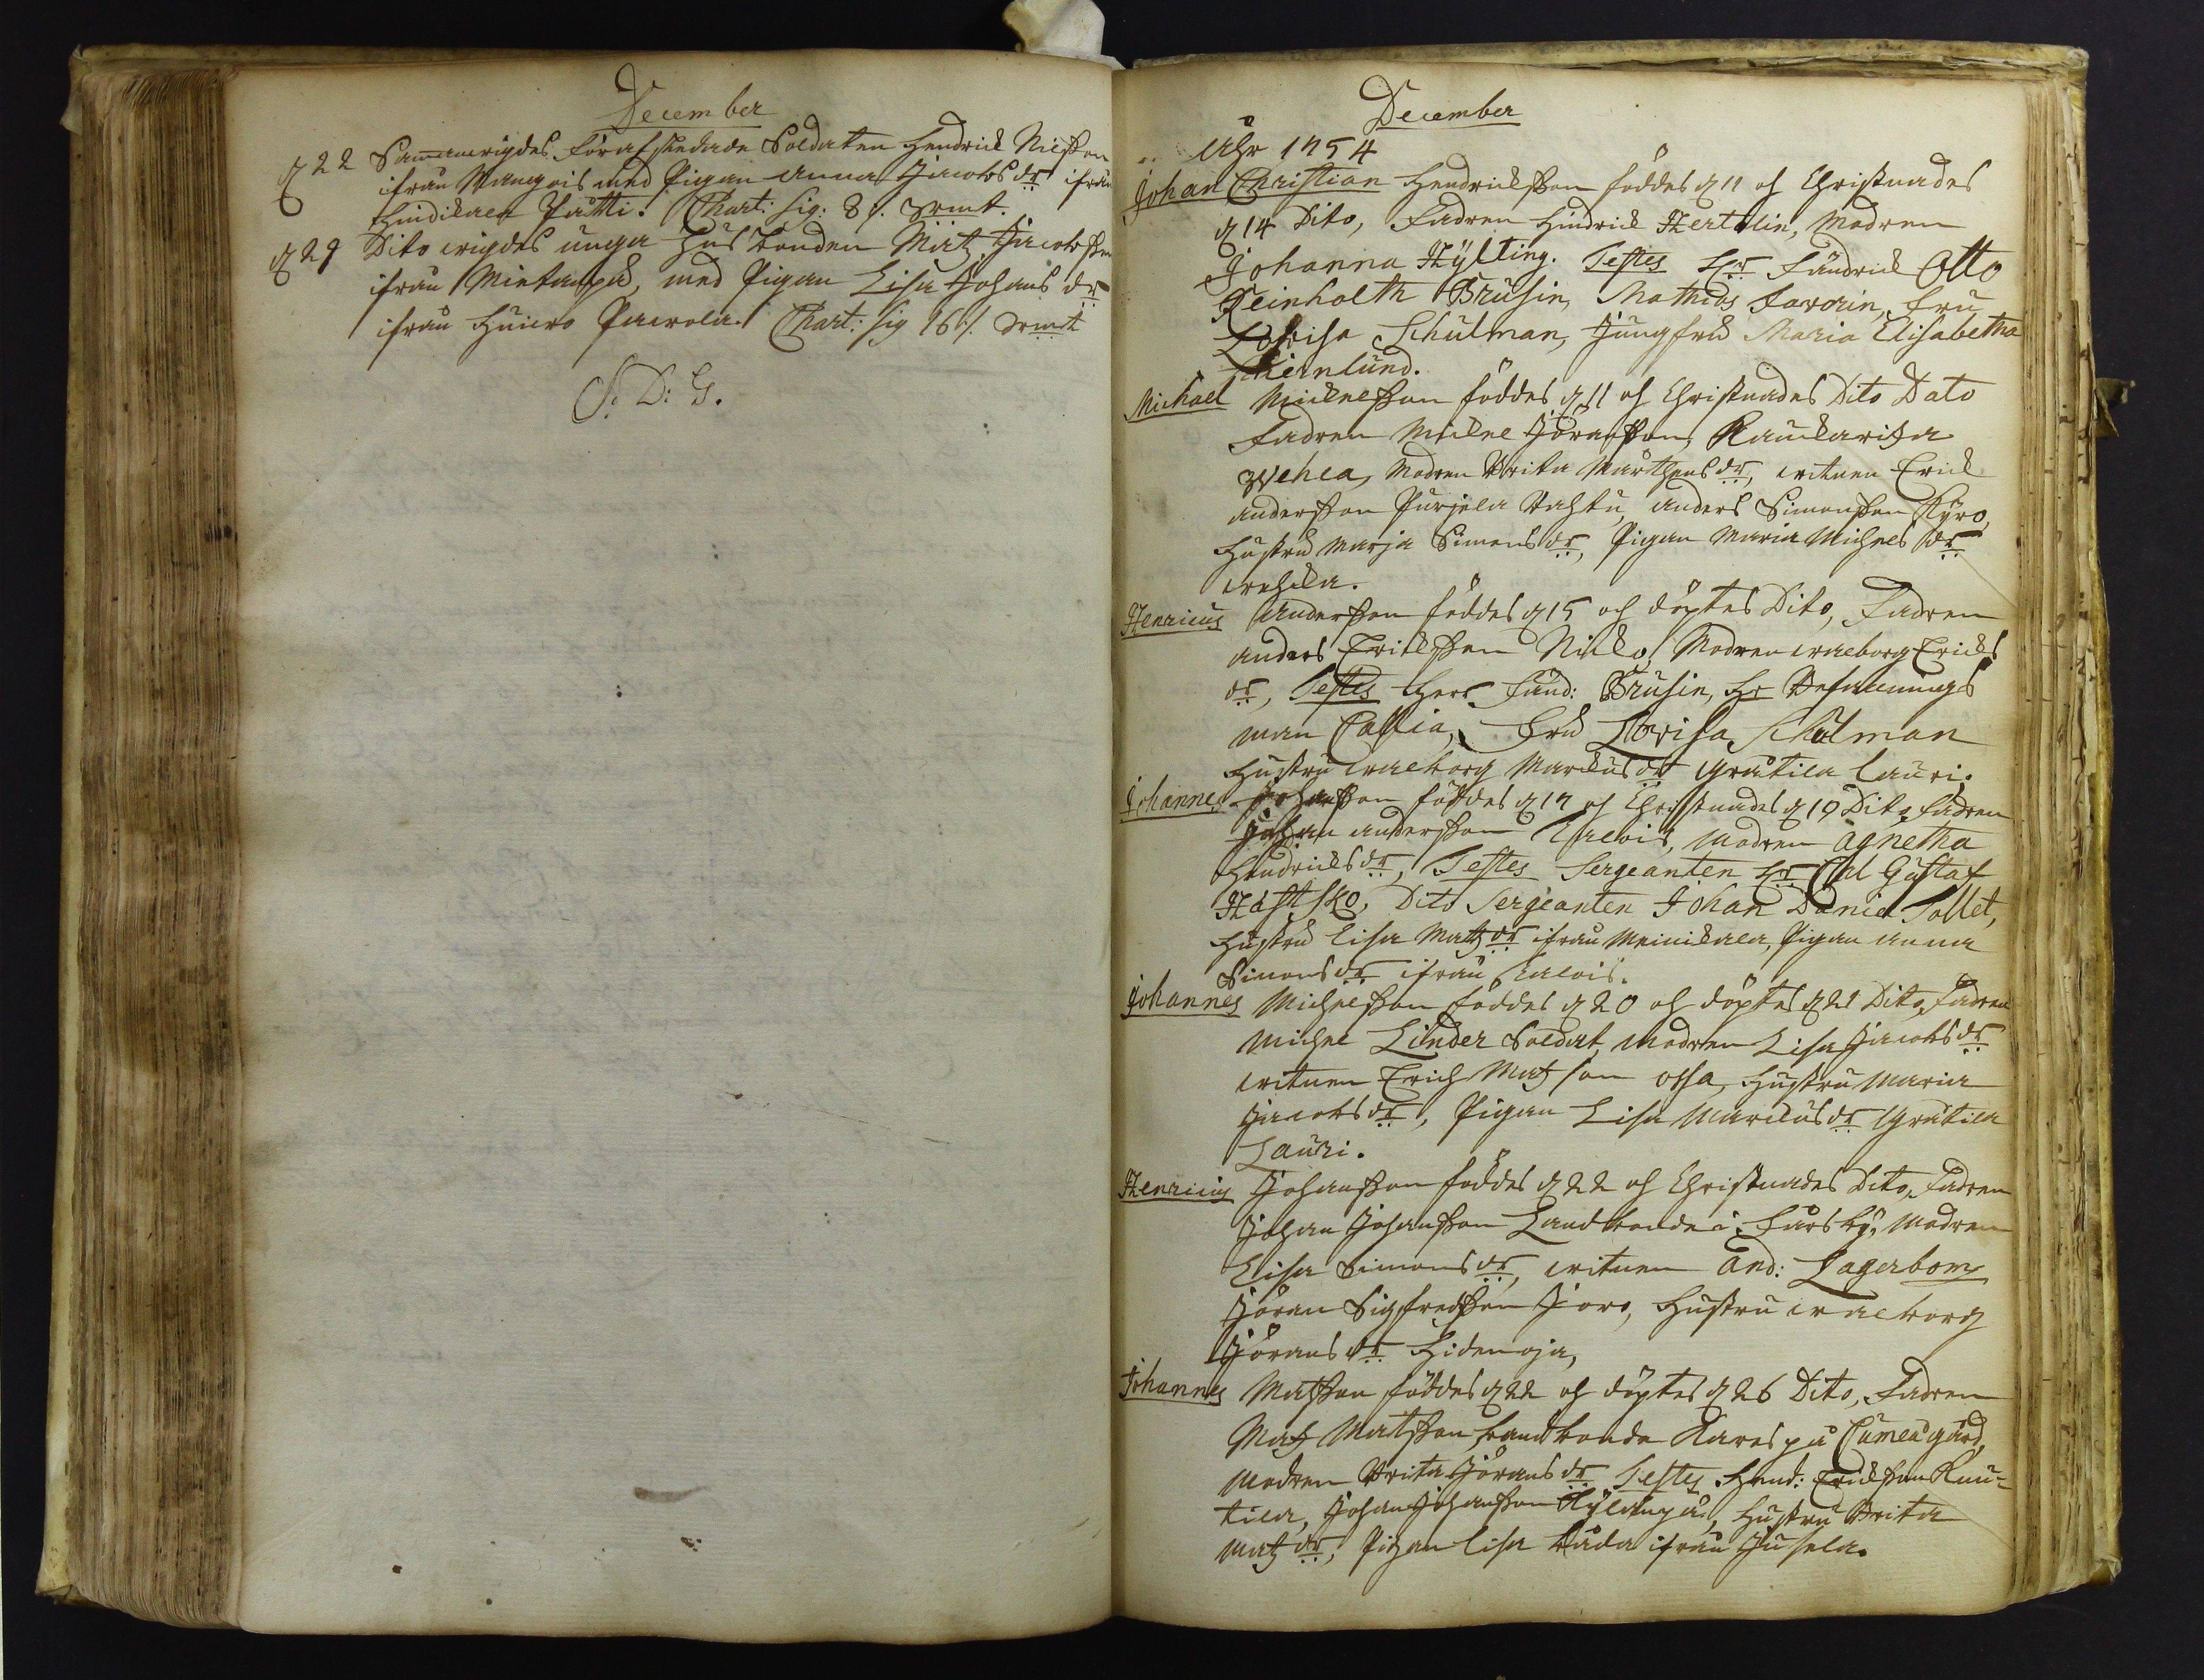 December
d 22 Sammanvigdes Förafskedade Soldaten Hendrick
ifrån med Pigan Anna Jacobs dr ifrån
Chart: Sig: 8 /. Srmt.
d 29 Dito vigdes unga Husbonden Matz Jacobsson
ifrån med Pigan Lisa Johans dr
ifrån Chart: Sig 16 /. Srmt
S. D: G.
December
Åhr 1754
Johan Christian Hendricksson föddes d 11 och Christnades
d 14 Dito, Fadren Hindrick Hertelin, Modren
Johanna Hylting. Testes Hr Fändrick Otto
Reinholth Brusin, Mathias Favorin, Fru
Lovisa Schulman, Jungfru Maria Elisabetha
Michael Mickelsson föddes d 11 och Christnades Dito Dato
Fadren Mickel Jöransson
Modren Brita Mårthens dr, vitnen Erick
Andersson Anders Simonsson Kyro,
Hustru Marja Simons dr, Pigan Maria Michels dr
Henricus Andersson föddes d 15 och döptes Dito, Fadren
Anders Ericksson Modren Walborg Ericks
dr, Testes Herr Fänd: Brusin, Hr Befallnings
man Fru Lovisa Schulman
Hustru Walborg Marckus dr Gråtila Lauri.
Johannes Johansson föddes d 17 och Christnades d 19 Dito, Fadren
Johan Andersson Modren Agnetha
Hendricks dr, Testes Sergeanten Hr Carl Gustaf
Hästsko, Dito Sergeanten Johan Daniel Tollet,
Hustru Lisa Matz dr ifrån Pigan Anna
Simons dr ifrån
Johannes Michelsson föddes d 20 och döptes d 21 Dito, Fadren
Michel Linder Soldat, Modren Lisa Jacobs dr
vitnen Erich Matzson Hustru Maria
Jacobs dr, Pigan Lisa Marckus dr Gråtila
Lauri.
Henricus Johansson föddes d 22 och Christnades Dito, Fadren
Johan Johansson Landbonde i Fårsby, Modren
Lisa Simons dr, vitnen And: Lagerbom
Jöran Sigfredsson Hustru Walborg
Jörans dr Hidenoja,
Johannes Matsson föddes d 22 och döptes d 26 Dito, Fadren
Matz Matsson, Landbonde på Cumeågård,
Modren Brita Jörans dr Testes Hend: Ericksson
Johan Johansson Hustru Brita
Matz dr, Pigan Lisa ifrån Jusela.